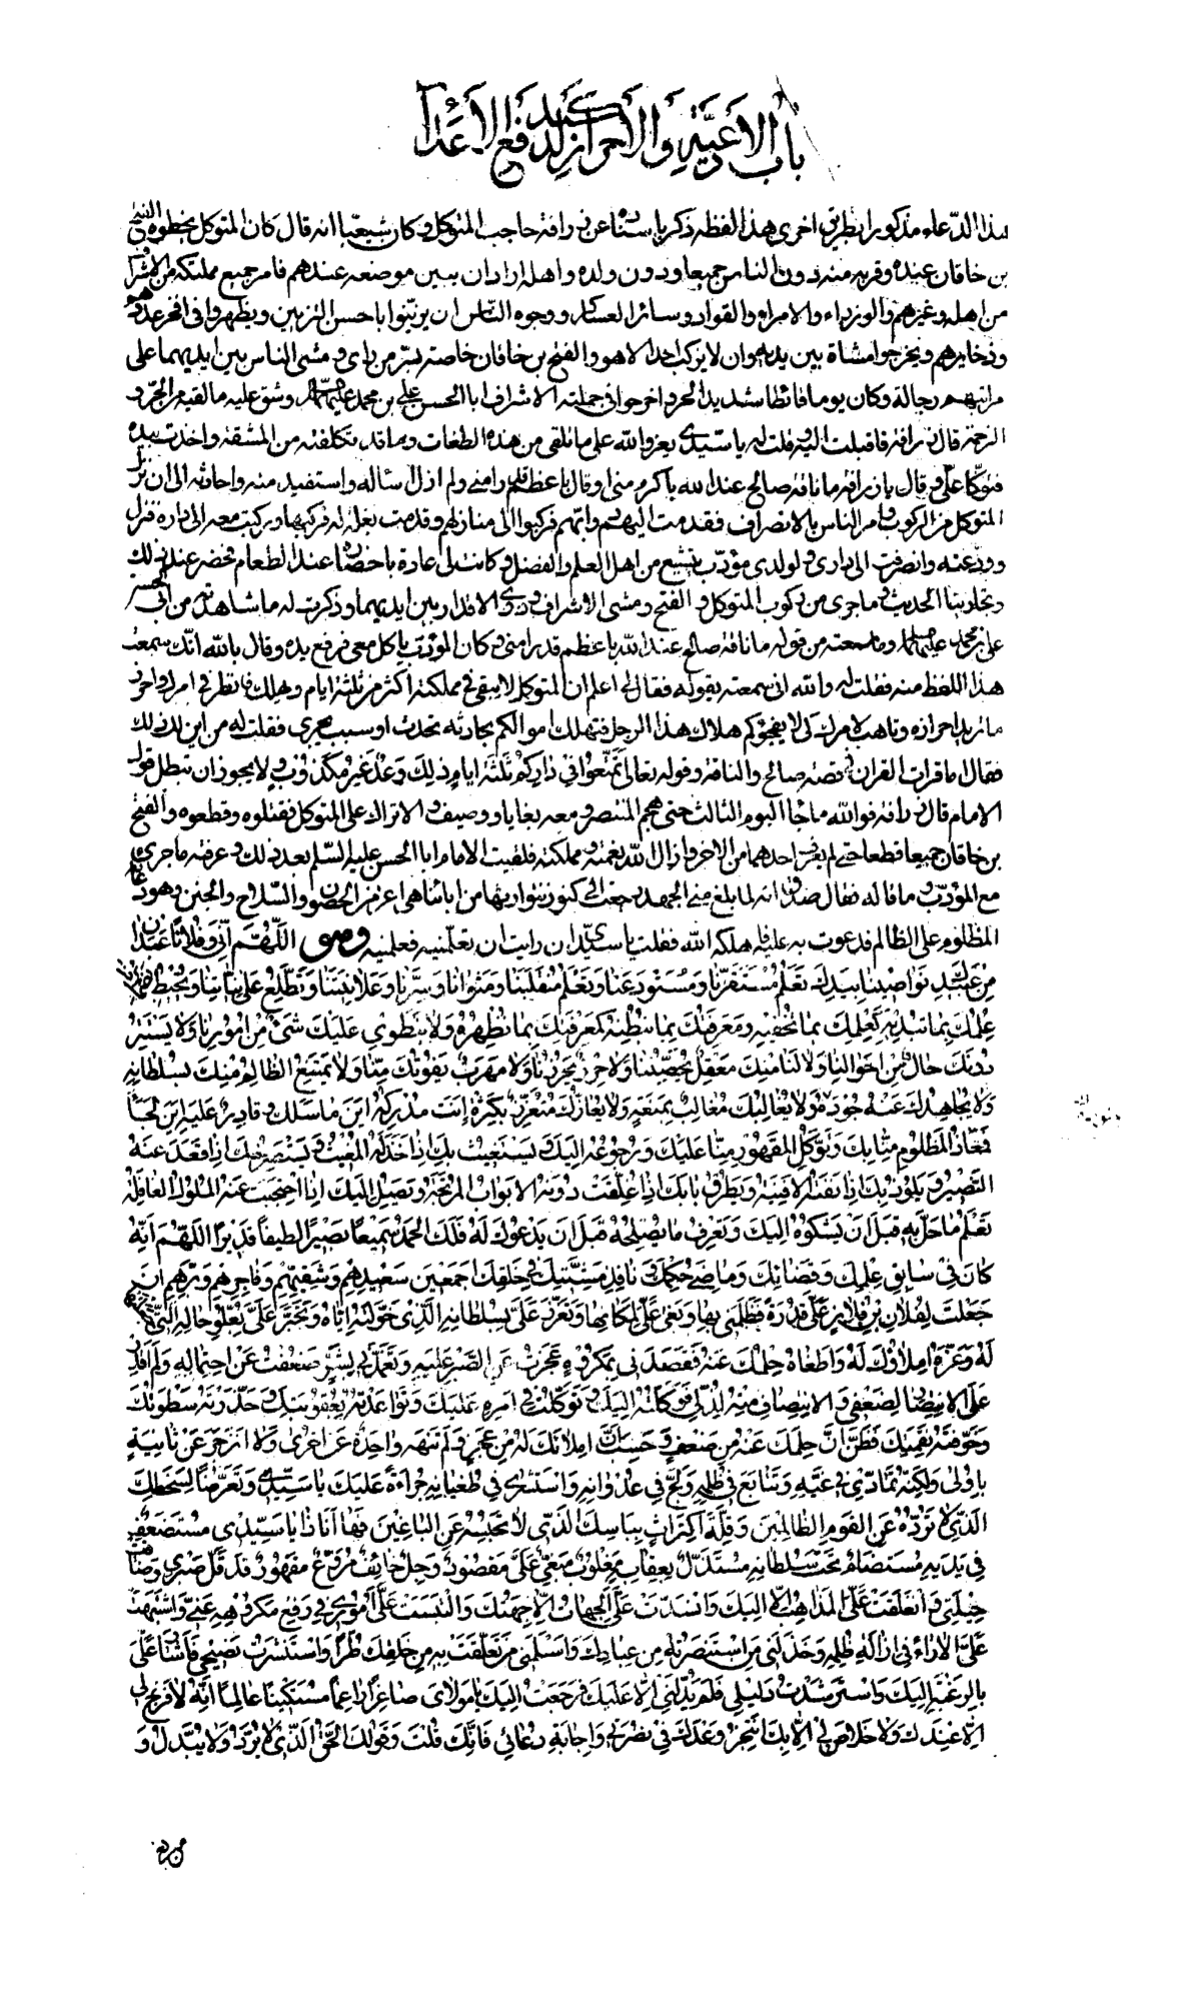 باب الأدعية والأحراز لدفع كيد الأعداء
هذا الدعاء مذكورا بطريق اخرى هذا لفظه ذكر باسنادنا عن زرافة حاجب المتوكل وكان شيعيا انه قال كان المتوكل يحظوه الفتح
بن خاقان عنده وقربه منه دون الناس جميعا ودون ولده واهله اراد ان يبين موضعه عندهم فامر جميع مملكته من الاشراف
من اهله وغيرهم والوزراء والامراء والقواد وسائر العساكر ووجوه الناس ان يزينوا باحسن التزيين ويظهروا في افخر عددهم
وذخايرهم ويخرجوا مشاة بين يديه وان لا يركب احد الا هو والفتح بن خاقان خاصة بسر من راى ومشى الناس بين ايديهما على
مراتبهم رجالة وكان يوما قائظا شديد الحر واخرجوا في جملة الاشراف ابا الحسن علي بن محمد عليهما السلم وشق عليه ما لقيه من الحر و
الزحمة قال زرافة فاقبلت اليه وقلت له يا سيدي يعز والله علي ما تلقى من هذه الطغات وما قد تكلفته من المشقة واخذت بيده
فتوكا علي وقال يا زرافة ما ناقة صالح عند الله باكرم مني او قال باعظم قدرا مني ولم ازل اسائله واستفيد منه واحادثه الى ان نزل
المتوكل من الركوب وامر الناس بالانصراف فقدمت اليهم دوابهم فركبوا الى منازلهم وقدمت بغلة له فركبها وركبت معه الى داره فنزل
وودعته وانصرفت الى داري ولولدي مؤدب يتشيع من اهل العلم والفضل وكانت لي عادة باحضاره عند الطعام فحضر عند ذلك
وتجارينا الحديث وما جرى من ركوب المتوكل والفتح ومشى الاشراف وذوي الاقدار بين ايديهما وذكرت له ما شاهدته من ابي الحسن
علي بن محمد عليهما السلم وما سمعته من قوله ما ناقة صالح عند الله باعظم قدرا مني وكان المؤدب ياكل معي فرفع يده وقال بالله انك سمعت
هذا اللفظ منه فقلت له والله اني سمعته يقوله فقال لي اعلم ان المتوكل لا يبقى في مملكته اكثر من ثلثة ايام ويهلك فانظر في امرك واحرز
ما تريد احرازه وتاهب لامرك كي لا يفجؤكم هلاك هذا الرجل فتهلك اموالكم بحادثة تحدث او سبب يجري فقلت له من اين لك ذلك
فقال اما قرات القران في قصة صالح والناقة وقوله تعالى تَمَتَّعُوا فِي دَارِكُمْ ثَلٰثَةَ اَيَّامٍ ذٰلِكَ وَعْدٌ غَيْرُ مَكْذُوبٍ ولا يجوز ان تبطل قول
الامام قال زرافة فوالله ما جاء اليوم الثالث حتى هجم المنتصر ومعه بغا ووصيف والاتراك على المتوكل فقتلوه وقطعوه والفتح
بن خاقان جميعا قطعا حتى لم يعرف احدهما من الاخر وازال الله نعمته ومملكته فلقيت الامام ابا الحسن عليه السلم بعد ذلك وعرفته ما جرى
مع المؤدب وما قاله فقال صدق انه لما بلغ مني الجهد رجعت الى كنوز نتوارثها من ابائنا هي اعز من الحصون والسلاح والجنن وهو دعاء
المظلوم على الظالم فدعوت به عليه فاهلكه الله فقلت يا سيدي ان رايت ان تعلمنيه فعلمنيه وهو اَللّٰهُمَّ اِنِّي وَفُلَانًا عَبْدَانِ
مِنْ عَبِيدِكَ نَوَاصِينَا بِيَدِكَ تَعْلَمُ مُسْتَقَرَّنَا وَمُسْتَوْدَعَنَا وَتَعْلَمُ مُنْقَلَبَنَا وَمَثْوَانَا وَسِرَّنَا وَعَلَانِيَتَنَا وَتَطَّلِعُ عَلَى نِيَّاتِنَا وَتُحِيطُ بِضَمَائِرِنَا
عِلْمُكَ بِمَا نُبْدِيهِ كَعِلْمِكَ بِمَا نُخْفِيهِ وَمَعْرِفَتُكَ بِمَا نُبْطِنُهُ كَمَعْرِفَتِكَ بِمَا نُظْهِرُهُ وَلَا يَنْطَوِي عَلَيْكَ شَيْءٌ مِنْ اُمُورِنَا وَلَا يَسْتَتِرُ
دُونَكَ حَالٌ مِنْ اَحْوَالِنَا وَلَا لَنَا مِنْكَ مَعْقِلٌ يُحَصِّنُنَا وَلَا حِرْزٌ يُحْرِزُنَا وَلَا مَهْرَبٌ يَفُوتُكَ مِنَّا وَلَا يَمْتَنِعُ الظَّالِمُ مِنْكَ بِسُلْطَانِهِ
وَلَا يُجَاهِدُكَ عَنْهُ جُنُودُهُ وَلَا يُغَالِبُكَ مُغَالِبٌ بِمَنَعَةٍ وَلَا يُعَازُّكَ مُتَعَزِّزٌ بِكَثْرَةٍ اَنْتَ مُدْرِكُهُ اَيْنَ مَا سَلَكَ وَقَادِرٌ عَلَيْهِ اَيْنَ لَجَاَ
فَمَعَاذُ الْمَظْلُومِ مِنَّا بِكَ وَتَوَكُّلُ الْمَقْهُورِ مِنَّا عَلَيْكَ وَرُجُوعُهُ اِلَيْكَ وَيَسْتَغِيثُ بِكَ اِذَا خَذَلَهُ الْمُغِيثُ وَيَسْتَصْرِخُكَ اِذَا قَعَدَ عَنْهُ
النَّصِيرُ وَيَلُوذُ بِكَ اِذَا نَفَتْهُ الْاَفْنِيَةُ وَيَطْرُقُ بَابَكَ اِذَا غُلِّقَتْ دُونَهُ الْاَبْوَابُ الْمُرْتَجَةُ وَيَصِلُ اِلَيْكَ اِذَا احْتَجَبَتْ عَنْهُ الْمُلُوكُ الْغَافِلَةُ
تَعْلَمُ مَا حَلَّ بِهِ قَبْلَ اَنْ يَشْكُوَهُ اِلَيْكَ وَتَعْرِفُ مَا يُصْلِحُهُ قَبْلَ اَنْ يَدْعُوَكَ لَهُ فَلَكَ الْحَمْدُ سَمِيعًا بَصِيرًا لَطِيفًا قَدِيرًا اَللّٰهُمَّ اِنَّهُ
كَانَ فِي سَابِقِ عِلْمِكَ وَقَضَائِكَ وَمَاضِي حُكْمِكَ وَنَافِذِ مَشِيَّتِكَ فِي خَلْقِكَ اَجْمَعِينَ سَعِيدِهِمْ وَشَقِيِّهِمْ وَفَاجِرِهِمْ وَبَرِّهِمْ اَنْ
جَعَلْتَ لِفُلَانِ بْنِ فُلَانٍ عَلَيَّ قُدْرَةً فَظَلَمَنِي بِهَا وَبَغَى عَلَيَّ لِمَكَانِهَا وَتَعَزَّزَ عَلَيَّ بِسُلْطَانِهِ الَّذِي خَوَّلْتَهُ اِيَّاهُ وَتَجَبَّرَ عَلَيَّ بِعُلُوِّ حَالِهِ الَّتِي
لَهُ وَغَرَّهُ اِمْلَاؤُكَ لَهُ وَاَطْغَاهُ حِلْمُكَ عَنْهُ فَقَصَدَنِي بِمَكْرُوهٍ عَجَزْتُ عَنِ الصَّبْرِ عَلَيْهِ وَتَعَمَّدَنِي بِشَرٍّ ضَعُفْتُ عَنِ احْتِمَالِهِ وَلَمْ اَقْدِرْ
عَلَى الْاِنْتِصَارِ لِضَعْفِي وَالْاِنْتِصَافِ مِنْهُ لِذُلِّي فَوَكَلْتُهُ اِلَيْكَ وَتَوَكَّلْتُ فِي اَمْرِهِ عَلَيْكَ وَتَوَاعَدْتُهُ بِعُقُوبَتِكَ وَحَذَّرْتُهُ سَطْوَتَكَ
وَخَوَّفْتُهُ نَقِمَتَكَ فَظَنَّ اَنَّ حِلْمَكَ عَنْهُ مِنْ ضَعْفٍ وَحَسِبَ اَنَّ اِمْلَائَكَ لَهُ مِنْ عَجْزٍ وَلَمْ تَنْهَهُ وَاحِدَةٌ عَنْ اُخْرَى وَلَا انْزَجَرَ عَنْ ثَانِيَةٍ
بِاُولٰى وَلٰكِنَّهُ تَمَادٰى فِي غَيِّهِ وَتَتَابَعَ فِي ظُلْمِهِ وَلَجَّ فِي عُدْوَانِهِ وَاسْتَشْرٰى فِي طُغْيَانِهِ جُرْاَةً عَلَيْكَ يَا سَيِّدِي وَتَعَرُّضًا لِسَخَطِكَ
الَّذِي لَا تَرُدُّهُ عَنِ الْقَوْمِ الظَّالِمِينَ وَقِلَّةَ اكْتِرَاثٍ بِبَاْسِكَ الَّذِي لَا تَحْبِسُهُ عَنِ الْبَاغِينَ فَهَا اَنَا ذَا يَا سَيِّدِي مُسْتَضْعَفٌ
فِي يَدَيْهِ مُسْتَضَامٌ تَحْتَ سُلْطَانِهِ مُسْتَذَلٌّ بِعِقَابِهِ مَغْلُوبٌ مَبْغِيٌّ عَلَيَّ مَقْصُودٌ وَجِلٌ خَائِفٌ مُرَوَّعٌ مَقْهُورٌ قَدْ قَلَّ صَبْرِي وَضَاقَتْ
حِيلَتِي وَانْغَلَقَتْ عَلَيَّ الْمَذَاهِبُ اِلَّا اِلَيْكَ وَانْسَدَّتْ عَلَيَّ الْجِهَاتُ اِلَّا جِهَتُكَ وَالْتَبَسَتْ عَلَيَّ اُمُورِي فِي دَفْعِ مَكْرُوهِهِ عَنِّي وَاشْتَبَهَتْ
عَلَيَّ الْاٰرَاءُ فِي اِزَالَةِ ظُلْمِهِ وَخَذَلَنِي مَنِ اسْتَنْصَرْتُهُ مِنْ عِبَادِكَ وَاَسْلَمَنِي مَنْ تَعَلَّقْتُ بِهِ مِنْ خَلْقِكَ طُرًّا وَاسْتَشَرْتُ نَصِيحِي فَاَشَارَ عَلَيَّ
بِالرَّغْبَةِ اِلَيْكَ وَاسْتَرْشَدْتُ دَلِيلِي فَلَمْ يَدُلَّنِي اِلَّا عَلَيْكَ فَرَجَعْتُ اِلَيْكَ يَا مَوْلَايَ صَاغِرًا رَاغِمًا مُسْتَكِينًا عَالِمًا اَنَّهُ لَا فَرَجَ لِي
اِلَّا عِنْدَكَ وَلَا خَلَاصَ لِي اِلَّا بِكَ اَنْتَجِزُ وَعْدَكَ فِي نُصْرَتِي وَاِجَابَةِ دُعَائِي فَاِنَّكَ قُلْتَ وَقَوْلُكَ الْحَقُّ الَّذِي لَا يُرَدُّ وَلَا يُبَدَّلُ وَ